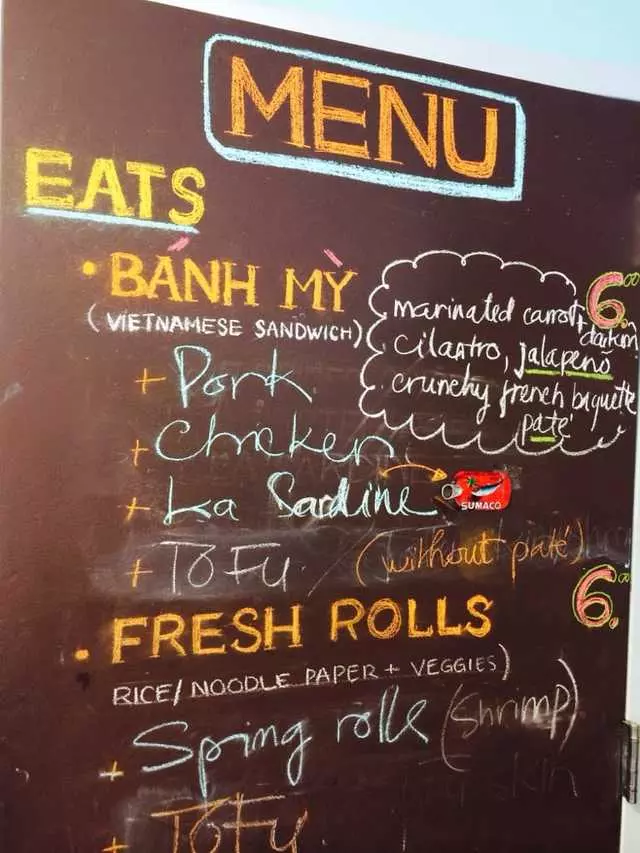 MENU
EATS
• BÁNH MỲ 6.00
(VIETNAMESE SANDWICH)
marinated carrot + daikon
cilantro, jalapeño
crunchy french baguette
paté
+ Pork
+ Chicken
+ La Sardine
SUMACO
+ TOFU (without paté)
• FRESH ROLLS 6.00
RICE/NOODLE PAPER + VEGGIES)
+ Spring rolls (shrimp)
+ TOFU